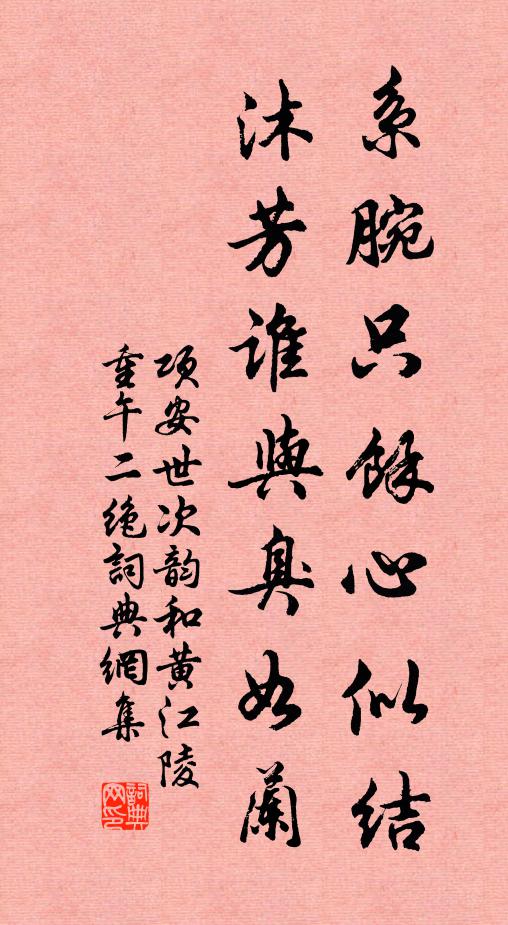 系腕只餘心似结
沐芳谁與臭如蘭
项安世次韵和黄江陵
重午二绝詞典網集
詞典网印